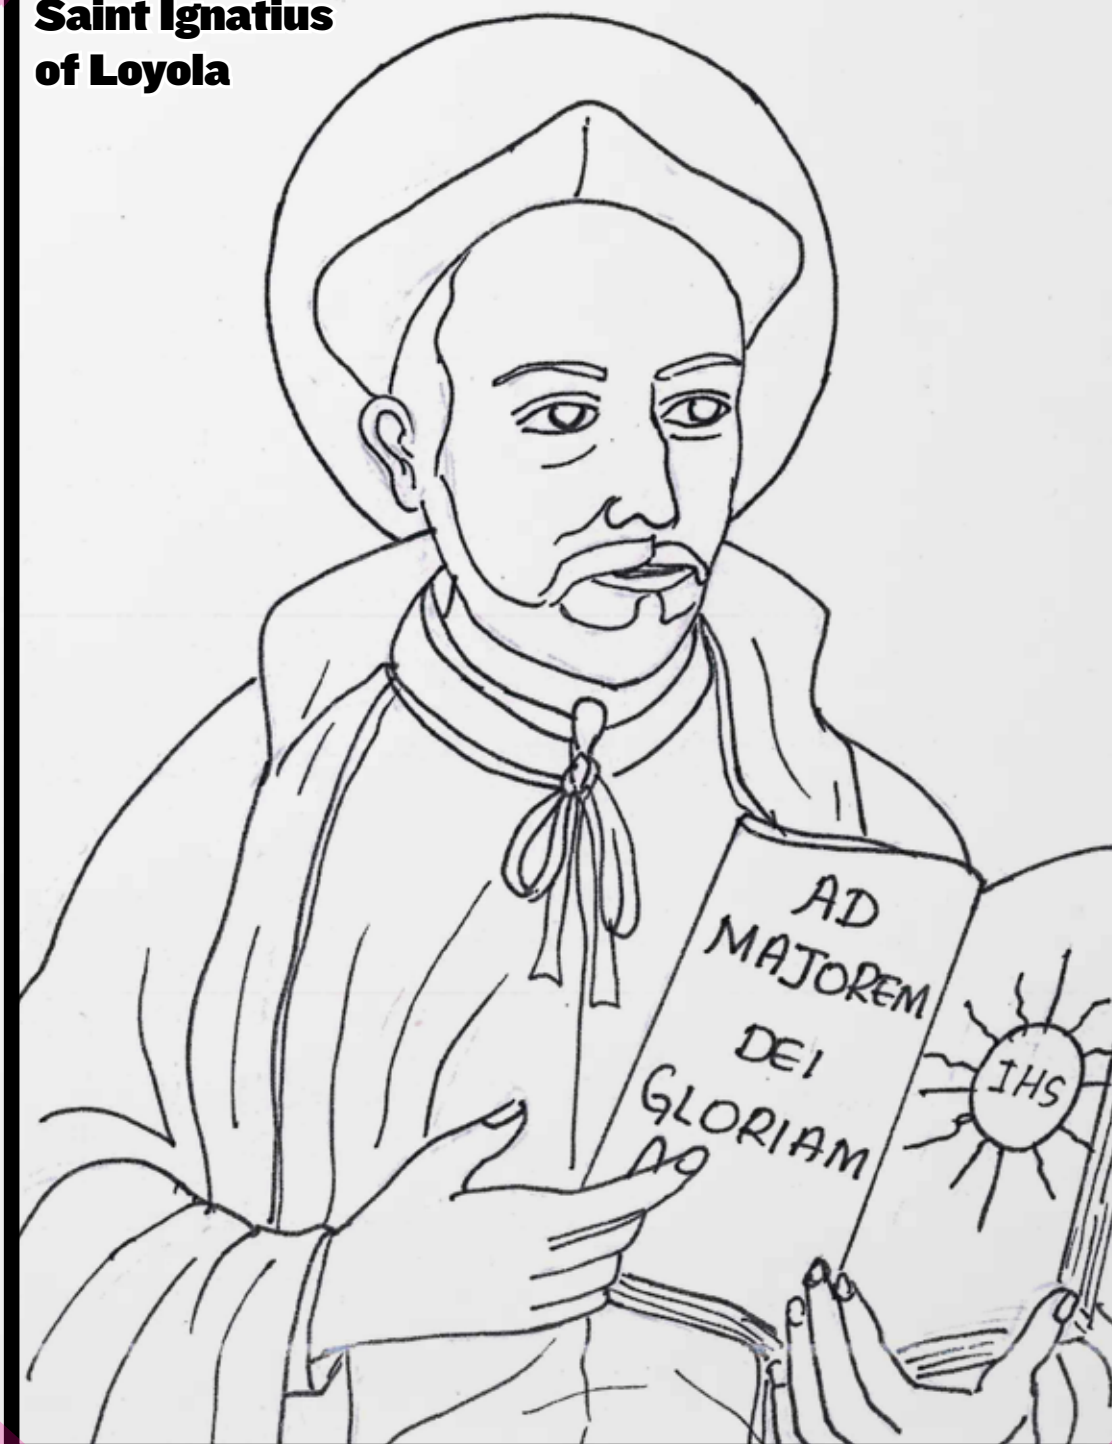 Saint Ignatius
of Loyola
AD
MAJOREM
DEI
GLORIAM
IHS